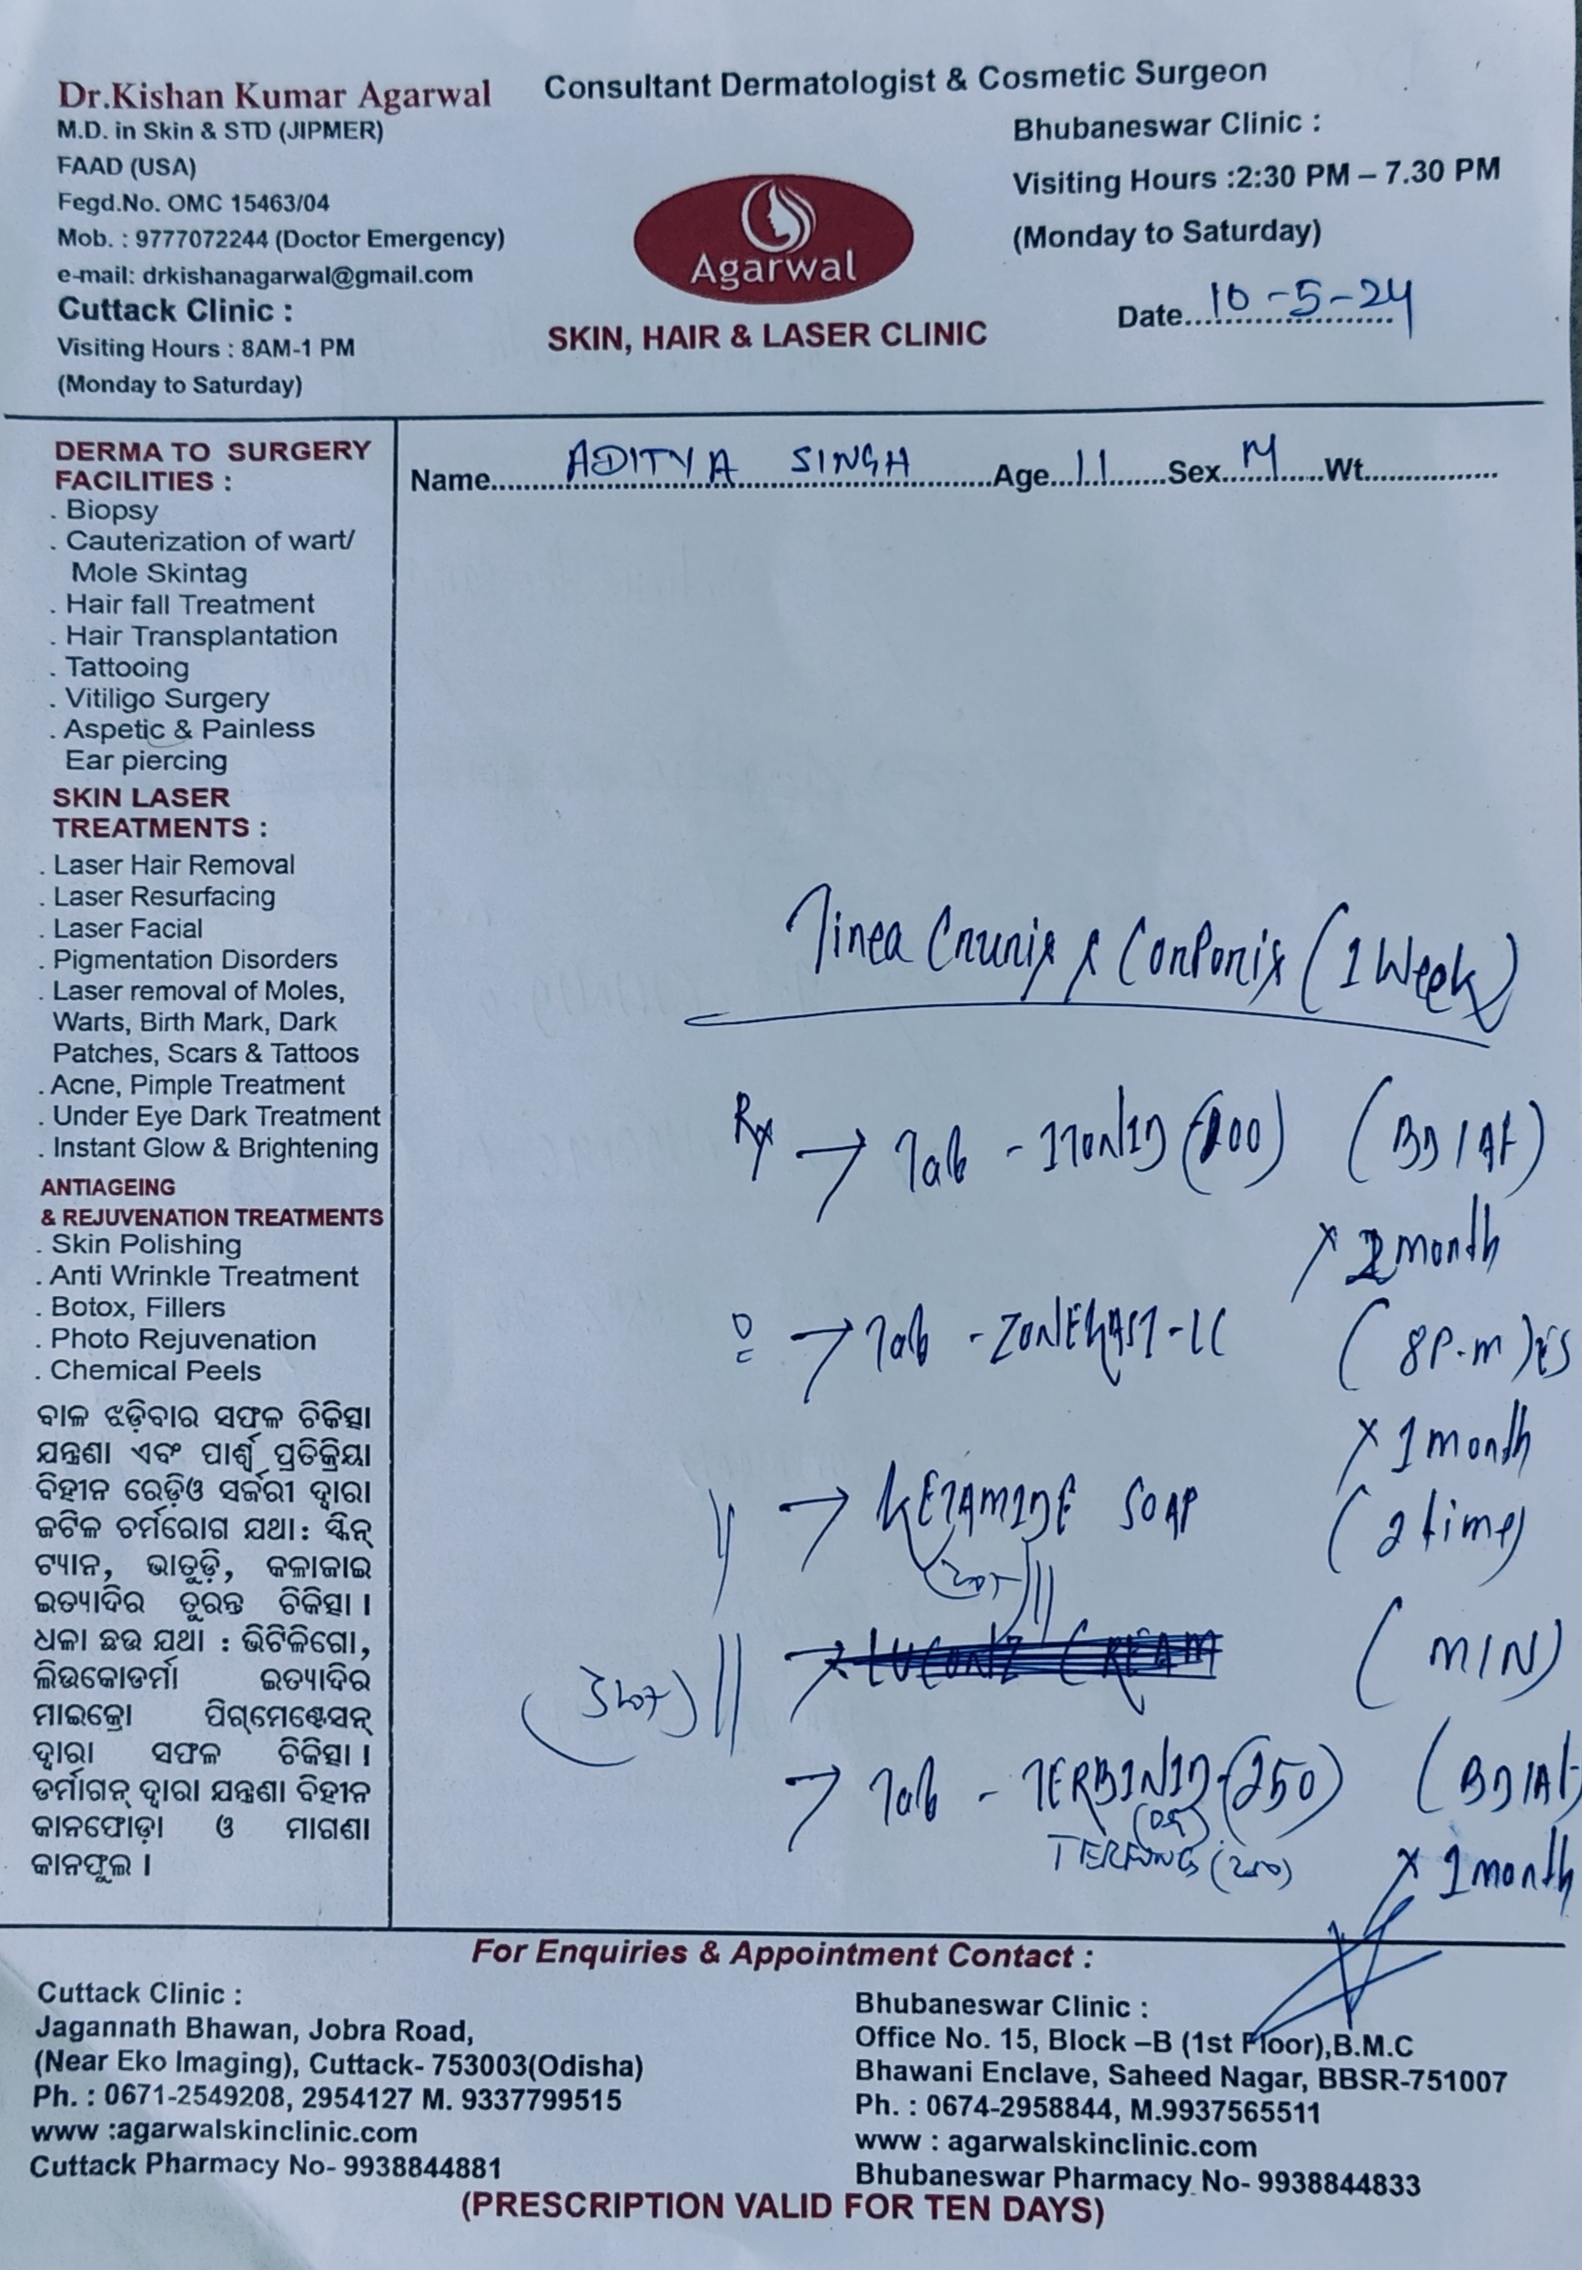 Dr.Kishan Kumar Agarwal
M.D. in Skin & STD (JIPMER)
FAAD (USA)
Fegd.No. OMC 15463/04
Mob. : 9777072244 (Doctor Emergency)
e-mail: drkishanagarwal@gmail.com
Cuttack Clinic :
Visiting Hours : 8AM-1 PM
(Monday to Saturday)
Consultant Dermatologist & Cosmetic Surgeon
Agarwal
SKIN, HAIR & LASER CLINIC
Bhubaneswar Clinic :
Visiting Hours :2:30 PM – 7.30 PM
(Monday to Saturday)
Date 10-5-24
DERMA TO SURGERY
FACILITIES :
. Biopsy
. Cauterization of wart/
Mole Skintag
. Hair fall Treatment
. Hair Transplantation
. Tattooing
. Vitiligo Surgery
. Aspetic & Painless
Ear piercing
SKIN LASER
TREATMENTS :
. Laser Hair Removal
. Laser Resurfacing
. Laser Facial
. Pigmentation Disorders
. Laser removal of Moles,
Warts, Birth Mark, Dark
Patches, Scars & Tattoos
. Acne, Pimple Treatment
. Under Eye Dark Treatment
. Instant Glow & Brightening
ANTIAGEING
& REJUVENATION TREATMENTS
. Skin Polishing
. Anti Wrinkle Treatment
. Botox, Fillers
. Photo Rejuvenation
. Chemical Peels
ବାଳ ଝଡ଼ିବାର ସଫଳ ଚିକିତ୍ସା
ଯନ୍ତ୍ରଣା ଏବଂ ପାର୍ଶ୍ୱ ପ୍ରତିକ୍ରିୟା
ବିହୀନ ରେଡ଼ିଓ ସର୍ଜରୀ ଦ୍ୱାରା
ଜଟିଳ ଚର୍ମରୋଗ ଯଥା: ସ୍କିନ୍
ଟ୍ୟାନ, ଭାତୁଡ଼ି, କଳାଜାଇ
ଇତ୍ୟାଦିର ତୁରନ୍ତ ଚିକିତ୍ସା।
ଧଳା ଛଉ ଯଥା : ଭିଟିଳିଗୋ,
ଲିଉକୋଡର୍ମା ଇତ୍ୟାଦିର
ମାଇକ୍ରୋ ପିଗ୍‌ମେଣ୍ଟେସନ୍
ଦ୍ୱାରା ସଫଳ ଚିକିତ୍ସା।
ଡର୍ମାଗନ୍ ଦ୍ୱାରା ଯନ୍ତ୍ରଣା ବିହୀନ
କାନଫୋଡ଼ା ଓ ମାଗଣା
କାନଫୁଲ।
Name ADITYA SINGH Age 11 Sex M Wt
Tinea Cruris & Corporis (1 Week)
Rx → Tab - ITONID (100) (BD/AF)
x 2 month
→ Tab - ZONEKAST-LC (8P.m)
x 1 month
→ KEZAMIDE SOAP (2 time)
→ LUCONIZ CREAM (M/N)
→ Tab - TERBINID-(250) (BD/AF)
(OR)
TERFUNG (250)
x 1 month
For Enquiries & Appointment Contact :
Cuttack Clinic :
Jagannath Bhawan, Jobra Road,
(Near Eko Imaging), Cuttack- 753003(Odisha)
Ph. : 0671-2549208, 2954127 M. 9337799515
www :agarwalskinclinic.com
Cuttack Pharmacy No- 9938844881
Bhubaneswar Clinic :
Office No. 15, Block –B (1st Floor),B.M.C
Bhawani Enclave, Saheed Nagar, BBSR-751007
Ph. : 0674-2958844, M.9937565511
www : agarwalskinclinic.com
Bhubaneswar Pharmacy No- 9938844833
(PRESCRIPTION VALID FOR TEN DAYS)